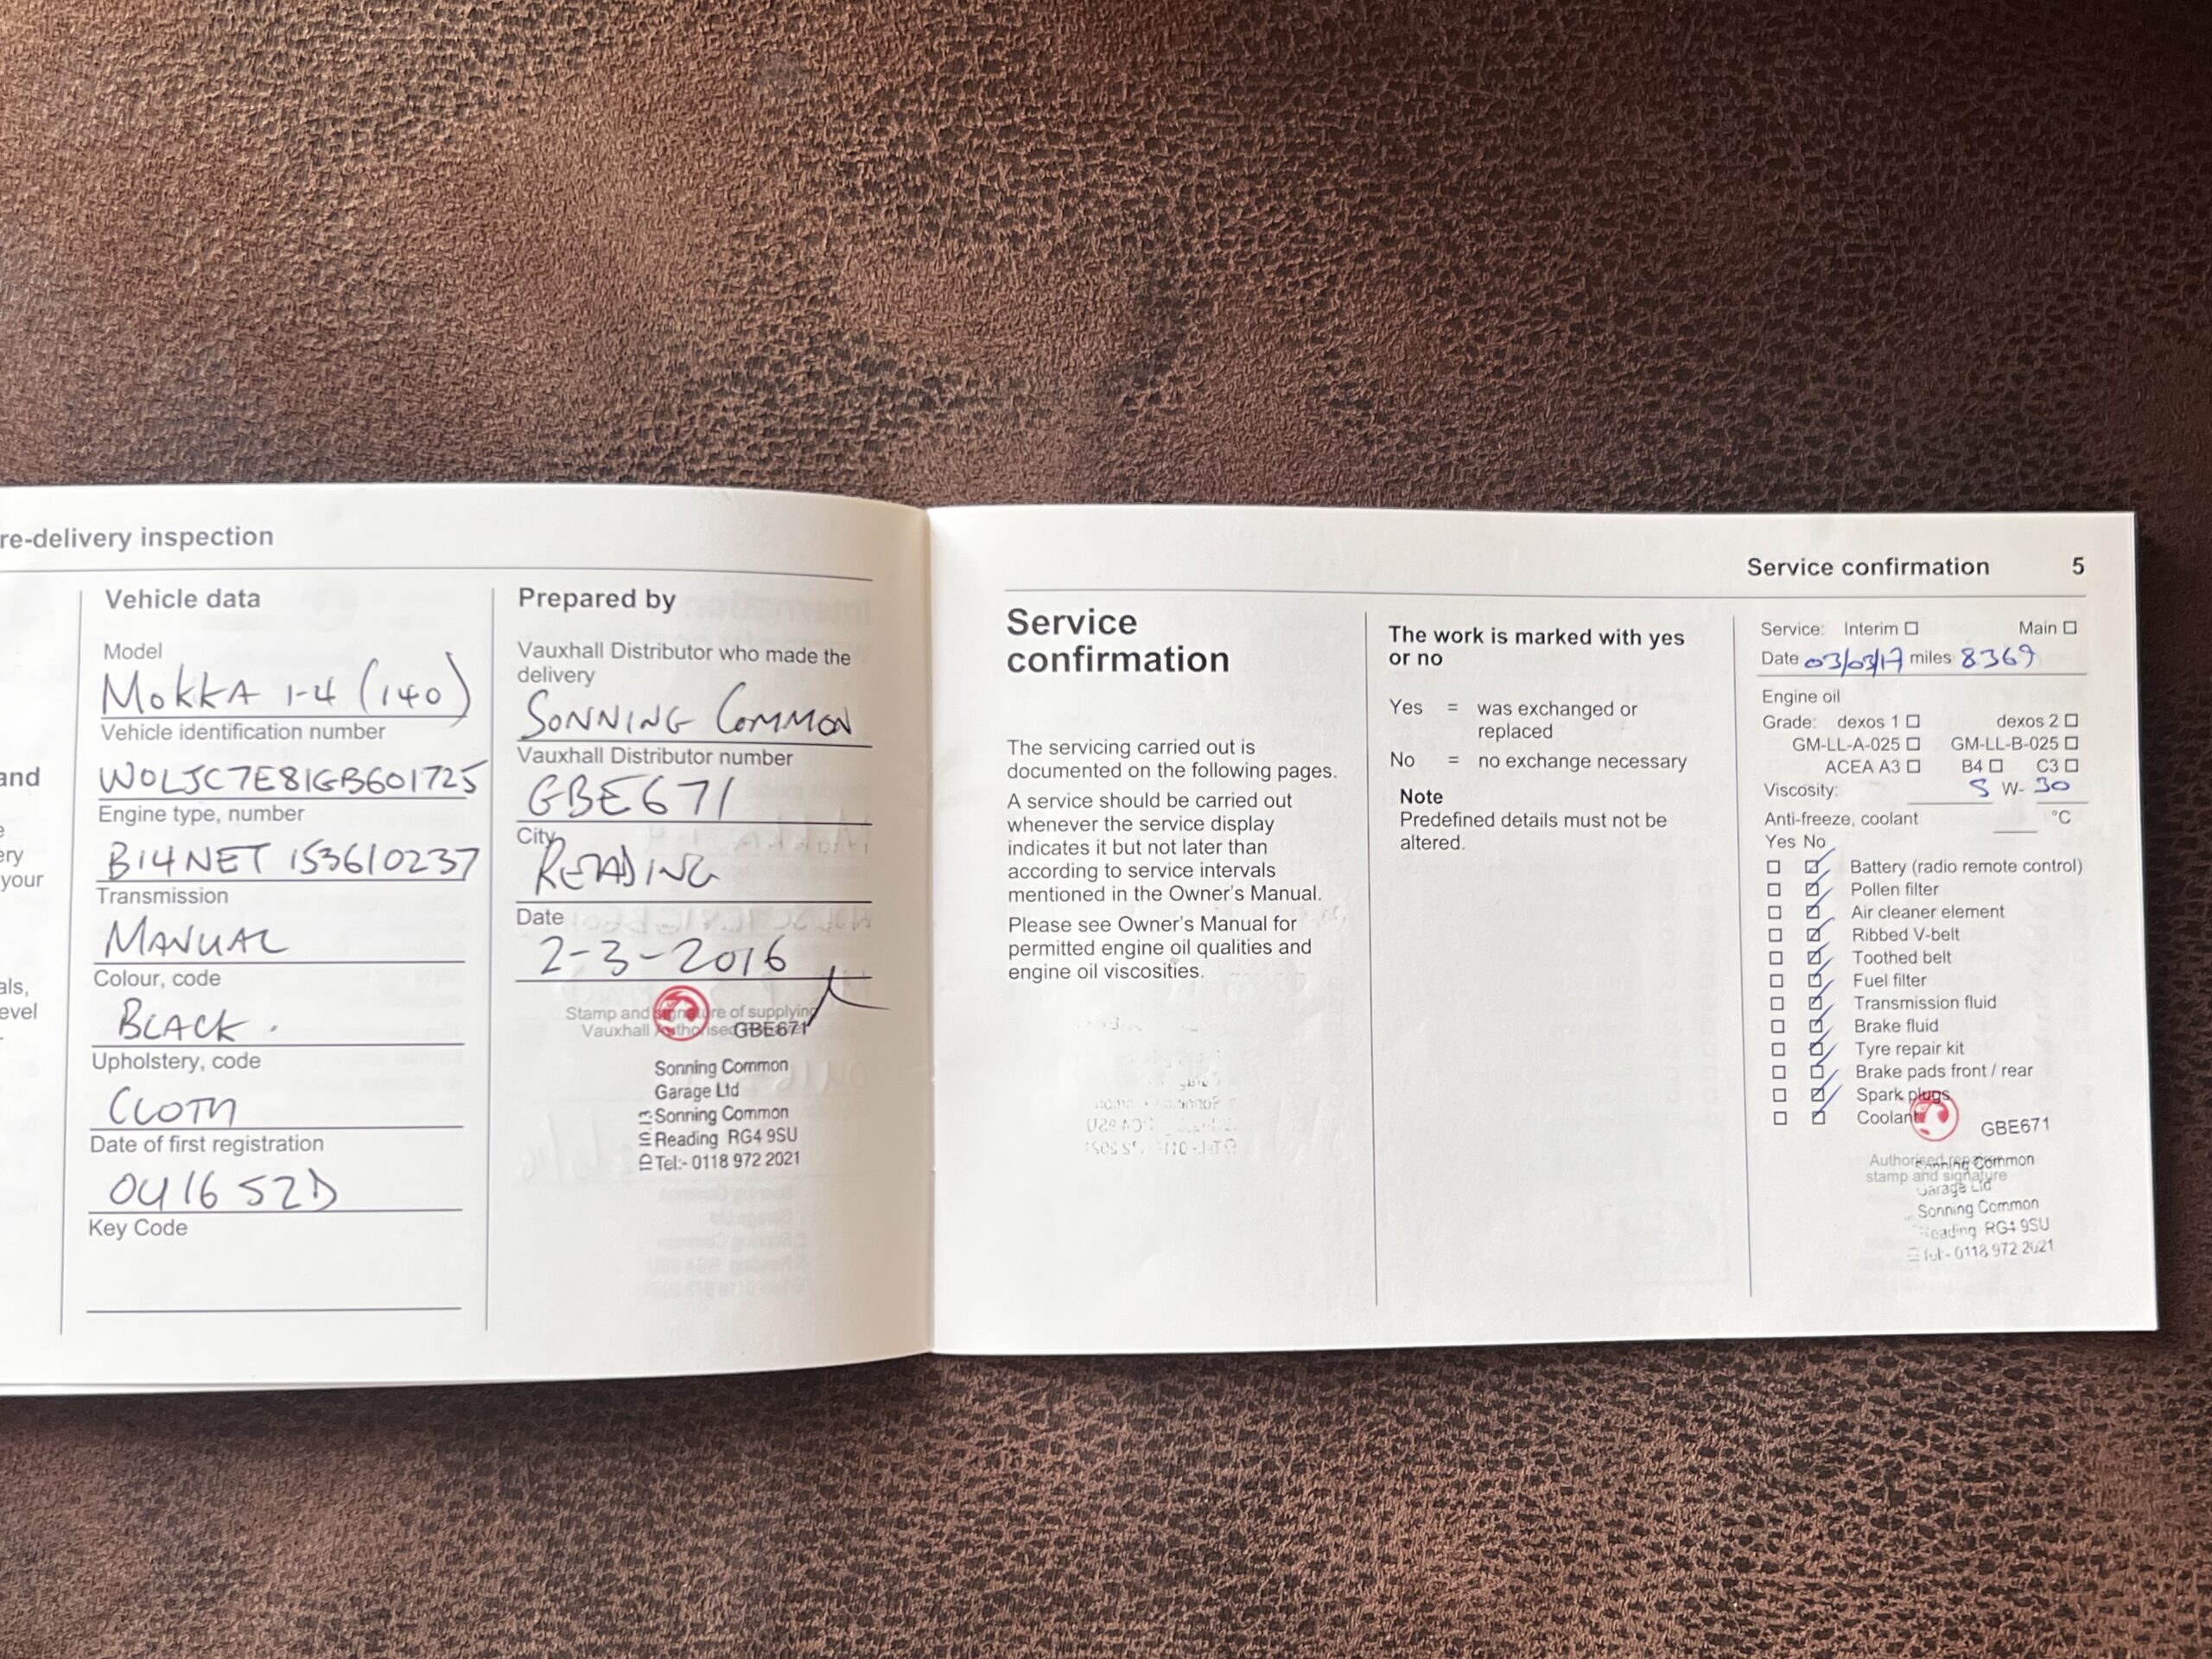 re-delivery inspection
and
ery
your
als,
evel
Vehicle data
Model
MOKKA 1-4 (140)
Vehicle identification number
W0LJC7E81GB601725
Engine type, number
B14NET 153610237
Transmission
MANUAL
Colour, code
BLACK.
Upholstery, code
CLOTH
Date of first registration
OU16 SZD
Key Code
Prepared by
Vauxhall Distributor who made the
delivery
SONNING COMMON
Vauxhall Distributor number
GBE671
City
READING
Date
2-3-2016
Stamp and signature of supplying
Vauxhall Authorised
GBE671
Sonning Common
Garage Ltd
Sonning Common
Reading RG4 9SU
Tel:- 0118 972 2021
Service confirmation 5
Service
confirmation
The servicing carried out is
documented on the following pages.
A service should be carried out
whenever the service display
indicates it but not later than
according to service intervals
mentioned in the Owner's Manual.
Please see Owner's Manual for
permitted engine oil qualities and
engine oil viscosities.
The work is marked with yes
or no
Yes = was exchanged or
replaced
No = no exchange necessary
Note
Predefined details must not be
altered.
Service: Interim Main
Date 03/03/17 miles 8369
Engine oil
Grade: dexos 1 dexos 2
GM-LL-A-025 GM-LL-B-025
ACEA A3 B4 C3
Viscosity: 5 W- 30
Anti-freeze, coolant °C
Yes No
Battery (radio remote control)
Pollen filter
Air cleaner element
Ribbed V-belt
Toothed belt
Fuel filter
Transmission fluid
Brake fluid
Tyre repair kit
Brake pads front / rear
Spark plugs
Coolant
GBE671
Authorised repairer
stamp and signature
Sonning Common
Garage Ltd
Sonning Common
Reading RG4 9SU
Tel:- 0118 972 2021